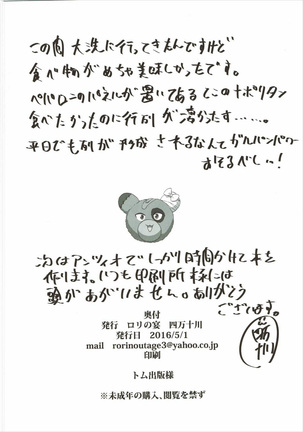 この間 大洗に行ってきたんですけど
食べ物がめちゃ美味しかったです。
ペパロニのパネルが置いてあるとこのナポリタン
食べたかったのに行列が凄かったす……。
平日でも列が形成されるなんてガルパンパワー
すごるべしぃ!
次はアンツィオでしっかり時間かけて本を
作ります。いつも印刷所様には
頭があがいません。ありがとう
ございます。
四万十川
奥付
発行 ロリの宴 四万十川
発行日 2016/5/1
mail rorinoutage3@yahoo.co.jp
印刷
トム出版様
※未成年の購入、閲覧を禁ず